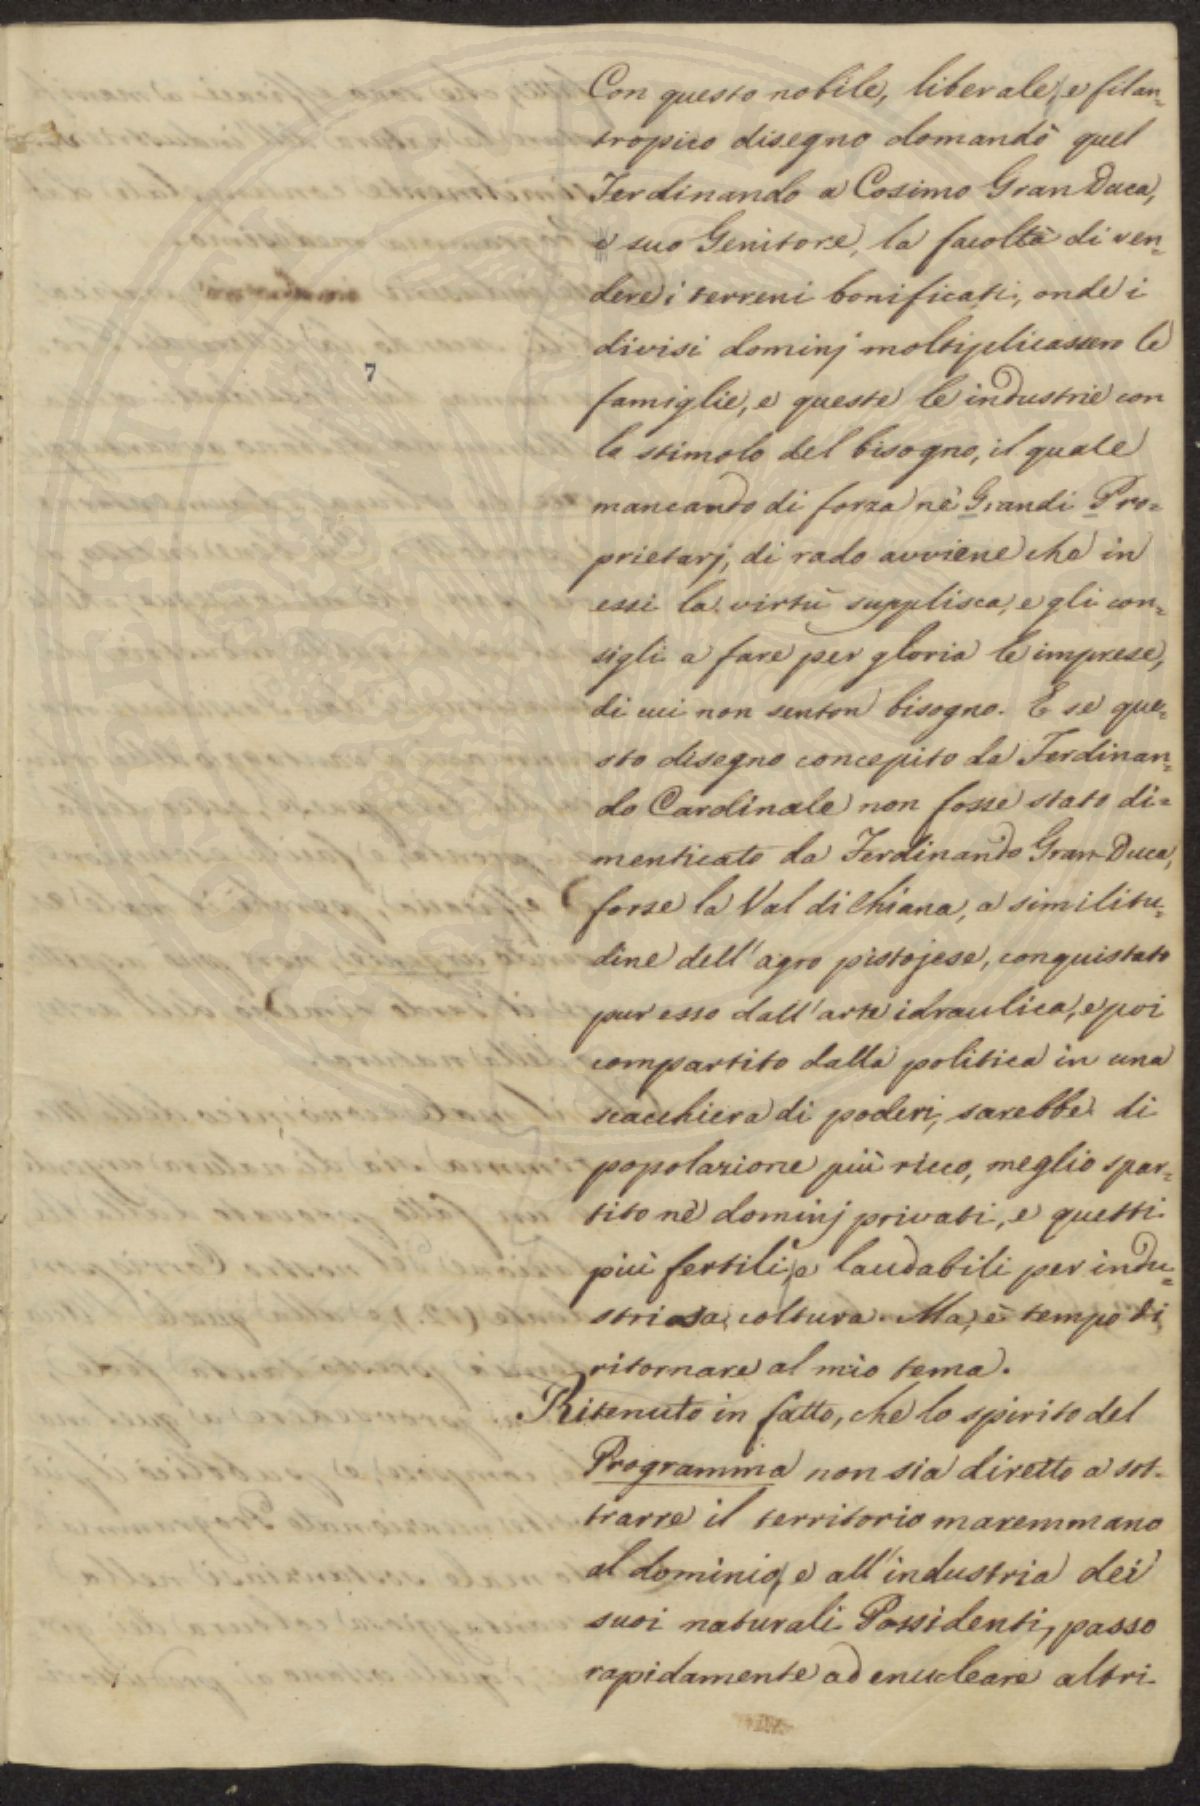 Con questo nobile, liberale, e filan=
tropico disegno domandò quel
Ferdinando a Cosimo Gran Duca,
e suo Genitore, la facoltà di ven=
dere i terreni bonificati, onde i
divisi dominj moltiplicassero le
7
famiglie, e queste le industrie con
lo stimolo del bisogno, il quale
mancando di forza nè Grandi Pro=
prietarj, di rado avviene che in
essi la virtù supplisca, e gli con=
sigli a fare per gloria le imprese,
di cui non senton bisogno. E se que=
sto disegno concepito da Ferdinan=
do Cardinale non fosse stato di=
menticato da Ferdinando Gran-Duca,
forse la Val di Chiana, a similitu=
dine dell'agro pistojese, conquistato
pur esso dall'arte idraulica, e poi
compartito dalla politica in una
scacchiera di poderi, sarebbe di
popolazione più ricco, meglio spar=
tito nè dominj privati, e questi
più fertili, e laudabili per indu=
striosa coltura. Ma, è tempo di
ritornare al mio tema.
Ritenuto in fatto, che lo spirito del
Programma non sia diretto a sot=
trarre il territorio maremmano
al dominio, e all'industria dei
suoi naturali Possidenti, passo
rapidamente ad enucleare altri